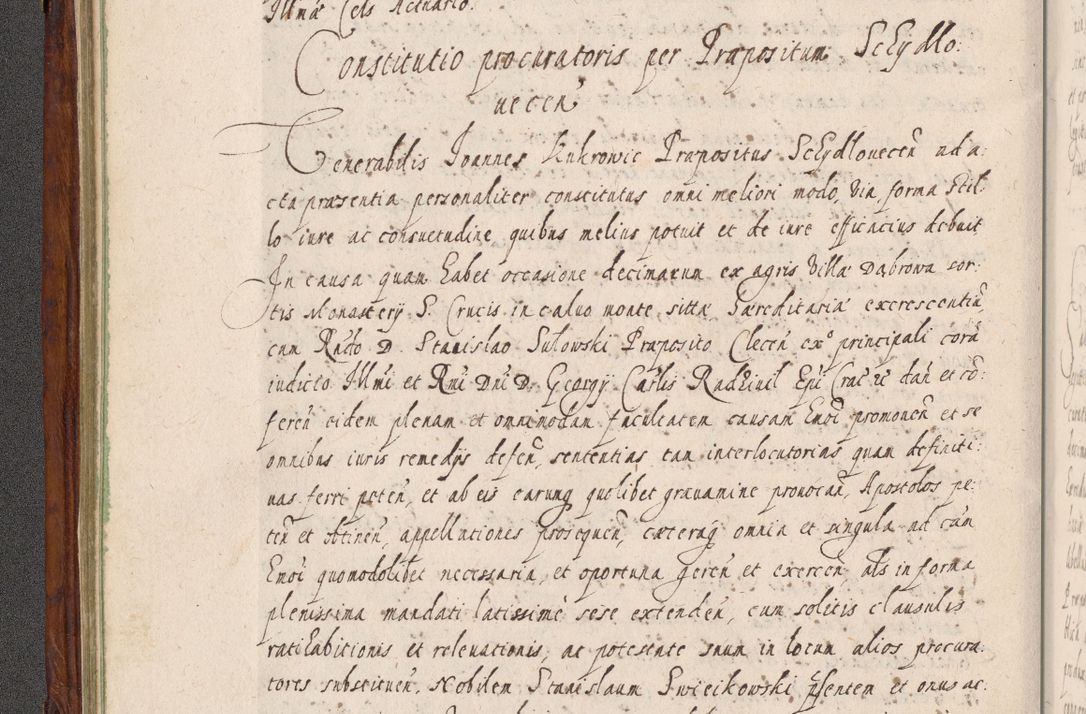 Illmã Cels Actuario.
Constitutio procuratoris per Præpositum Schydlo:
uecen̄
Venerabilis Joannes Kukrowic Præpositus Schydlouecen̄ ad a:
cta præsentia personaliter constitutus omni meliori modo, via, forma stil:
lo iure ac consuetudine, quibus melius potuit et de iure efficacius debuit
In causa quam habet occasione decimarum ex agris Villæ Dąbrowa sor:
tis Monastery S. Crucis in caluo monte, sittæ hæreditariæ excrescentiũ,
cum Rñdo D. Stanislao Sulowski Præposito Clecen̄ exº principali corã
iudicio Illmi et Rmi Dni D. Georgy Carlis Radziuil Epi Crac̄ zc̄ dan̄ et cõ:
feren̄ eidem plenam et omnimodam facultatem causam hmõi promouen̄ et se
omnibus iuris remedijs defen̄, sententias tam interlocutorias quam definiti:
uas ferri peten̄, et ab eis earumq̃ quolibet grauamine prouocan̄, Apostolos pe:
ten̄ et obtinen̄, appellationes prosequen̄, cæteraq̃ omnia et singula ad cãm
hmõi quomodolibet necessaria, et oportuna geren̄ et exercen̄, ału̅s in forma
plenissima mandati latissime sese extenden̄, cum solitis clausulis
ratihabitionis et releuationis, ac potestate suum in locum alios procura:
tores substituen̄. Nobilem Stanislaum Swieikowski p̃sentem et onus ac: